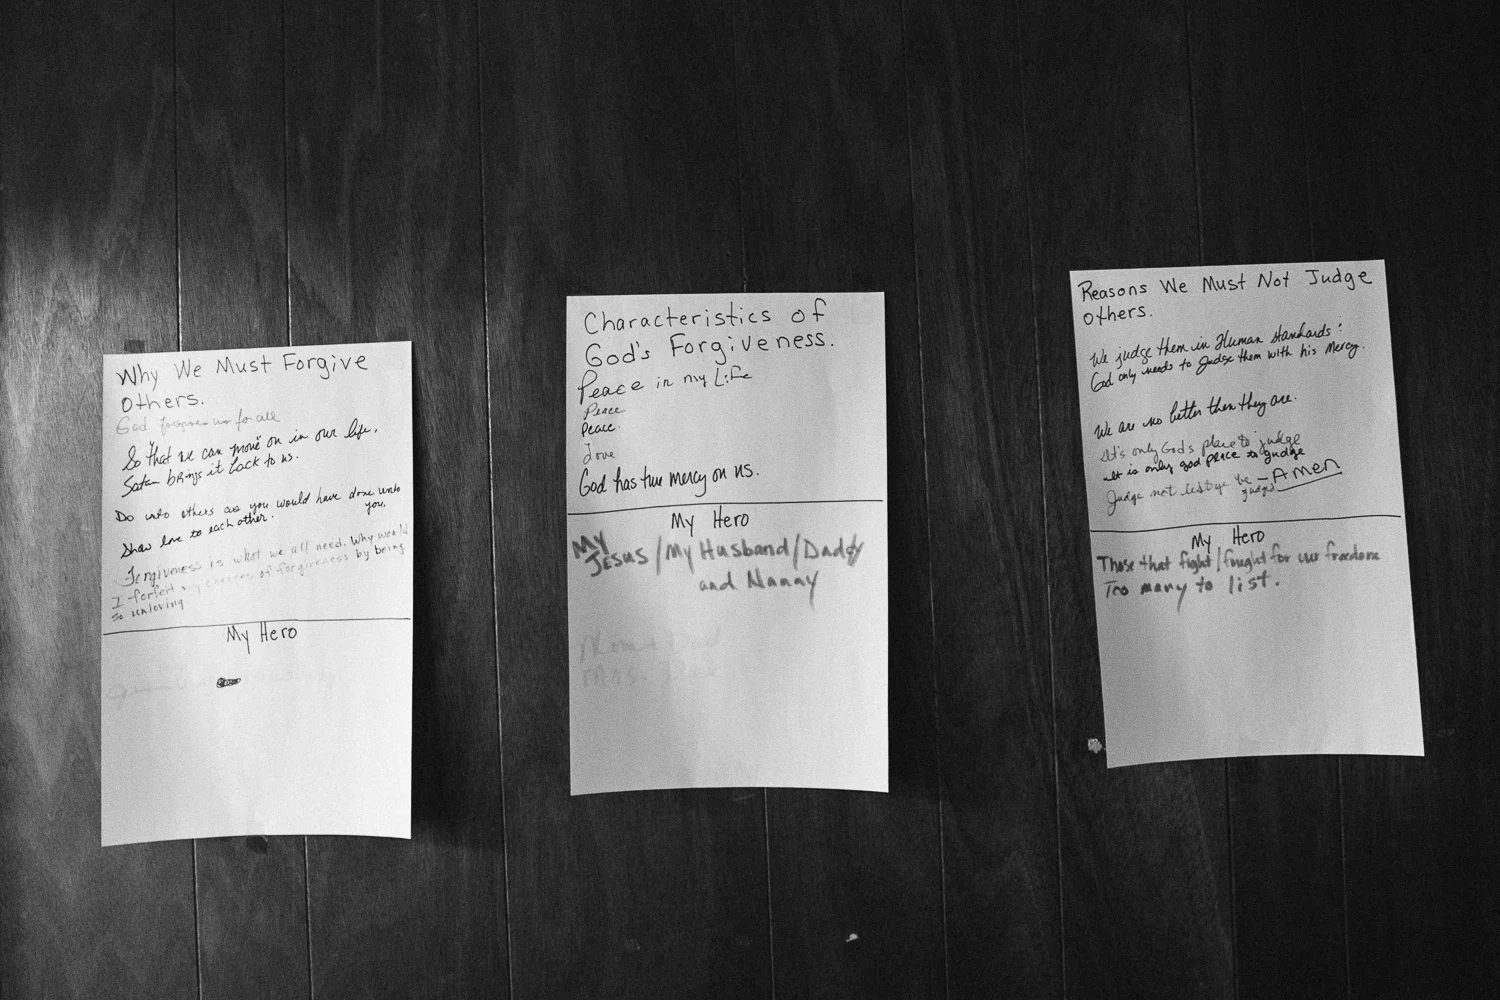 Why We Must Forgive
Others.
God forgives us for all
So that we can "move" on in our life,
Satan brings it back to us.
Do unto others as you would have done unto
you.
Show love to each other.
Forgiveness is what we all need. Why would
I forfeit my chances of forgiveness by being
so unloving
My Hero
Characteristics of
God's Forgiveness.
Peace in my Life
Peace
Peace.
Love
God has true mercy on us.
My Hero
My
Jesus/My Husband/Daddy
and Nanny
Mom + Dad
Mrs.
Reasons We Must Not Judge
Others.
We judge them in Human standards:
God only needs to Judge them with his Mercy.
We are no better then they are.
It's only God's place to judge
it is only god peace to judge
Judge not lest ye be - Amen
judged
My Hero
Those that fight/fought for our freedome
Too many to list.